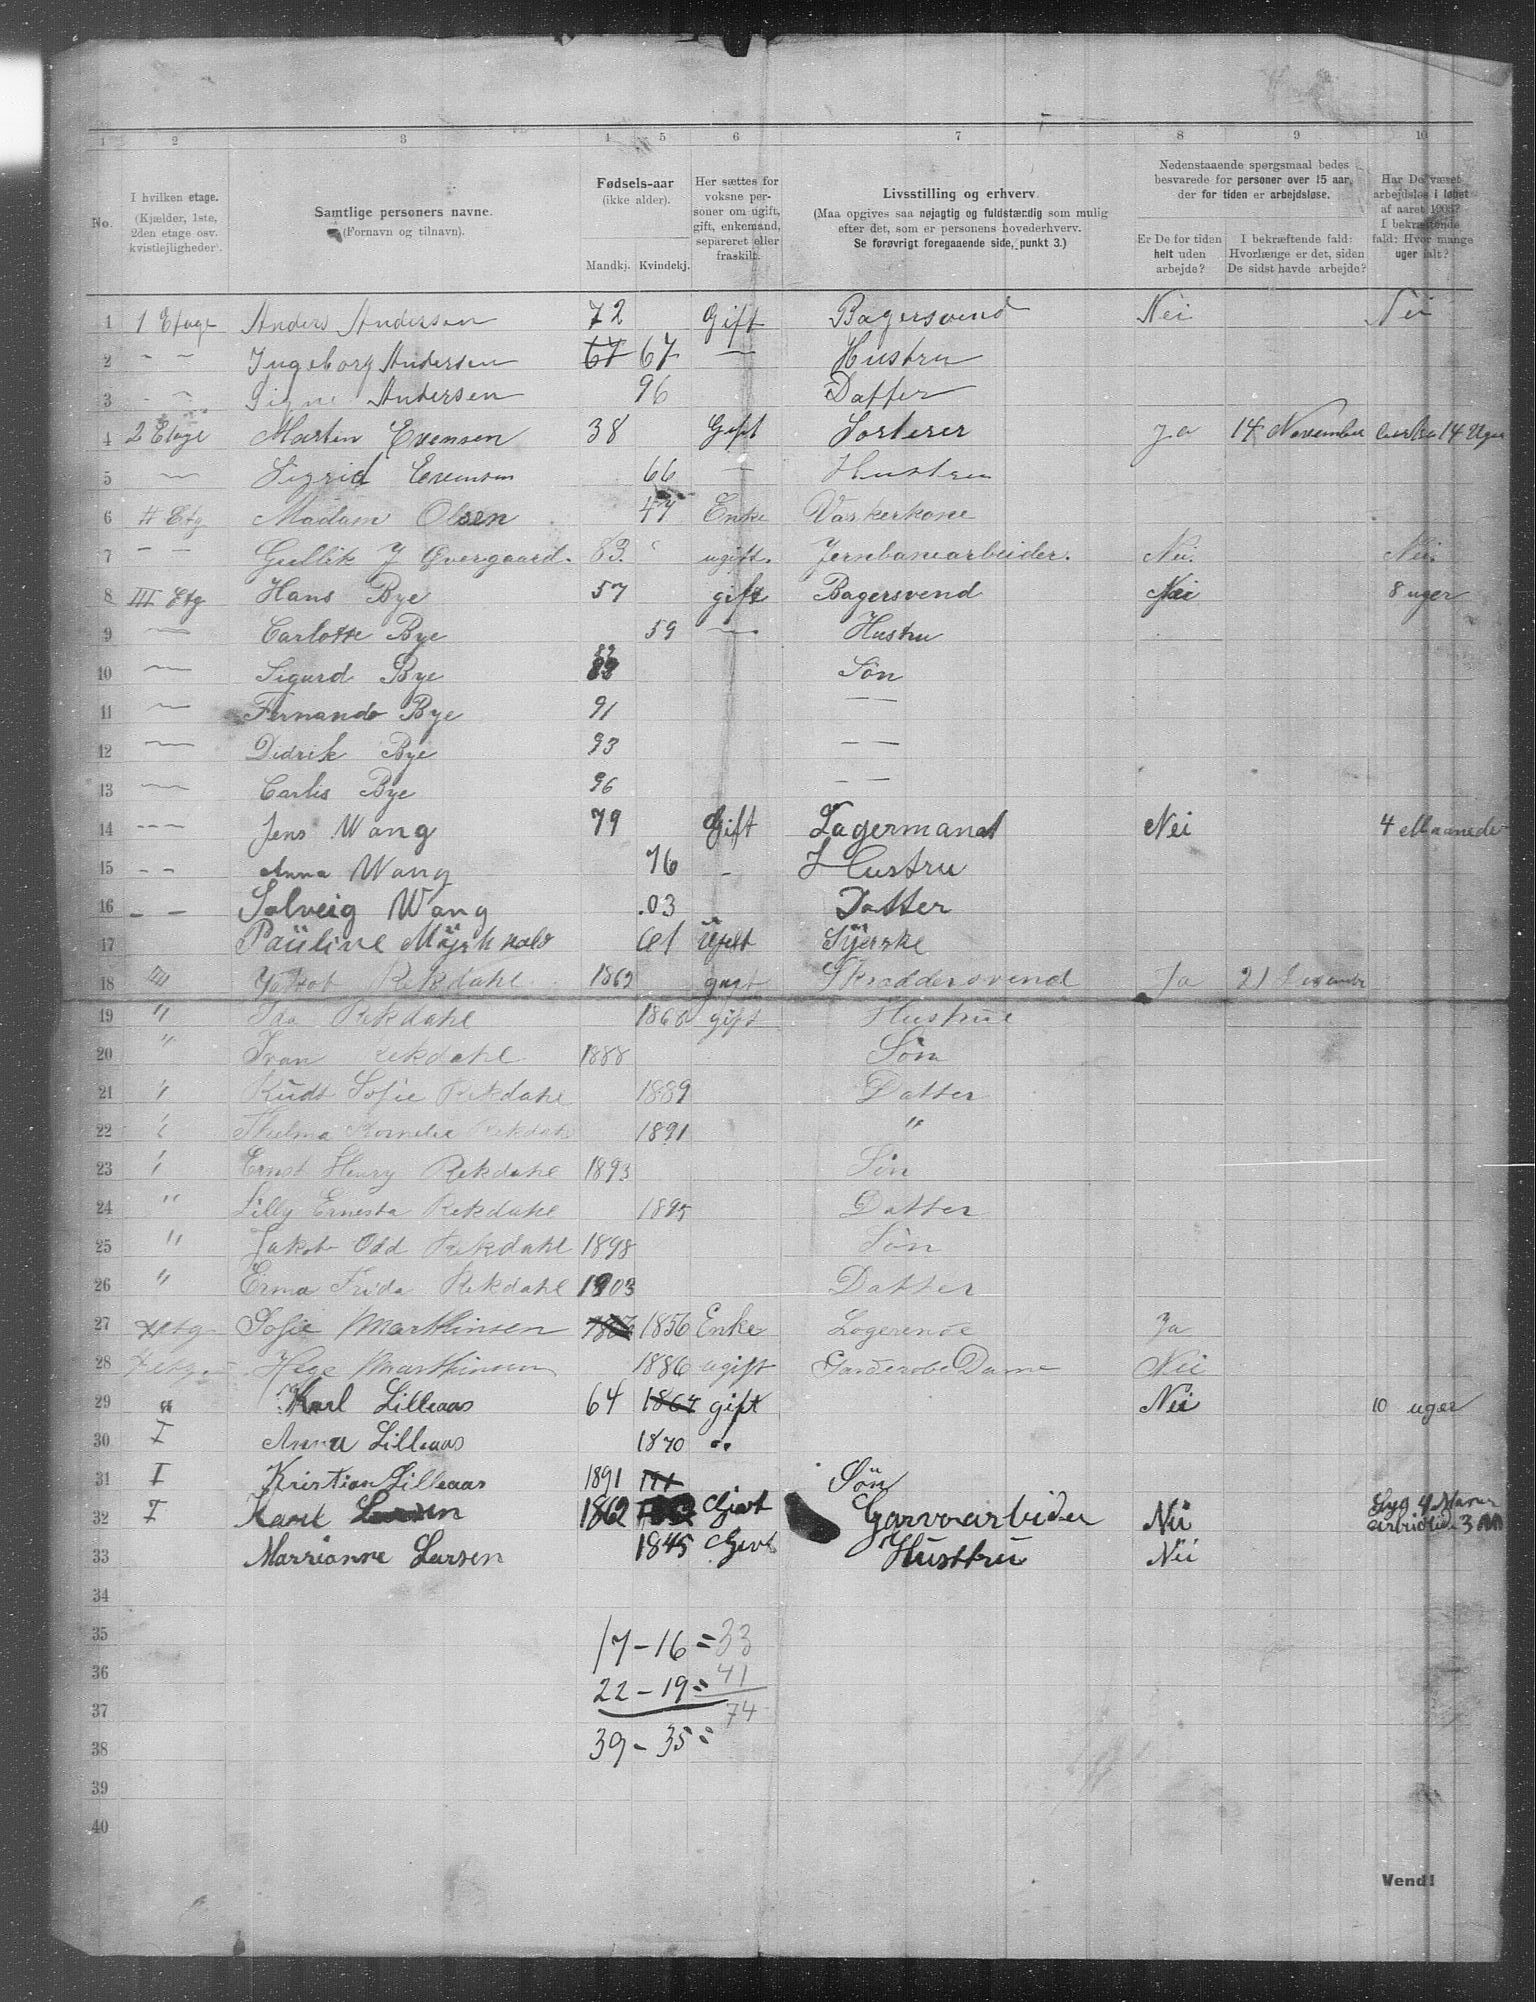 1 2 3 4 5 6 7 8 9 10
No.
I hvilken etage. (Kjælder, 1ste, 2den etage osv. kvistlejligheder).
Samtlige personers navne. (Fornavn og tilnavn).
Fødsels-aar (ikke alder). Mandkj. Kvindekj.
Her sættes for voksne personer om ugift, gift, enkemand, separeret eller fraskilt.
Livsstilling og erhverv. (Maa opgives saa nøjagtig og fuldstændig som mulig efter det, som er personens hovederhverv. Se forøvrigt foregaaende side, punkt 3.)
Nedenstaaende spørgsmaal bedes besvarede for personer over 15 aar, der for tiden er arbejdsløse.
Er De for tiden helt uden arbejde?
I bekræftende fald: Hvorlænge er det, siden De sidst havde arbejde?
Har De været arbejdsløs i løbet af aaret 1903? I bekræftende fald: Hvor mange uger ialt?
1 1 Etage Anders Andersen 72 Gift Bagersvend Nei Nei
2 - - Ingeborg Andersen 67 67 — Hustru
3 - - Signe Andersen 96 Datter
4 2 Etage Martin Evensen 38 Gift Sorterer Ja 14 November cirka 14 Uger
5 — Sigrid Evensen 66 — Hustru
6 II Etg Madam Olsen 47 Enke Vaskerkone
7 - - Gullik J Overgaard. 83. ugift. Jernbanearbeider. Nei. Nei.
8 III Etg Hans Bye 57 gift Bagersvend Nei 8 uger
9 — Carlotte Bye 59 — Hustru
10 — Sigurd Bye Søn
11 — Fernando Bye 91 — —
12 — Didrik Bye 93 — —
13 — Carlis Bye 96 — —
14 - - - Jens Wang 79 Gift Lagermand Nei 4 Maaneder
15 - - Anna Wang 76 - Hustru
16 - - Solveig Wang .03 Datter
17 Pauline 61 Ugift Syerske
18 Jakob Rekdahl 1862 gift Skræddersvend Ja 21 Desember
19 " Rekdahl 1868 gift Hustrue
20 " Ivan Rekdahl 1888 Søn
21 " Sofie Rekdahl 1889 Datter
22 " Rekdahl 1891 "
23 " Ernst Henry Rekdahl 1893 Søn
24 " Lilly Ernesta Rekdahl 1895 Datter
25 " Jakob Odd Rekdahl 1898 Søn
26 " Erma Frida Rekdahl 1903 Datter
27 Sofie Marthinsen 1856 Enke Logerende Ja
28 Marthinsen 1886 ugift Garderobe Dame Nei
29 " Karl Lilleaas 64 1864 gift Nei 10 uger
30 I Anna Lilleaas 1870 "
31 I Kristian Lilleaas 1891 Søn
32 I Karel Larsen 1862 Givt Garvvarbider Nei Syg 4 3 M
33 Marrianne Larsen 1845 Givt Husttru Nei
34
35 17 - 16 = 33
36 22 - 19 = 41
37 74
38 39 - 35 =
39
40
Vend!